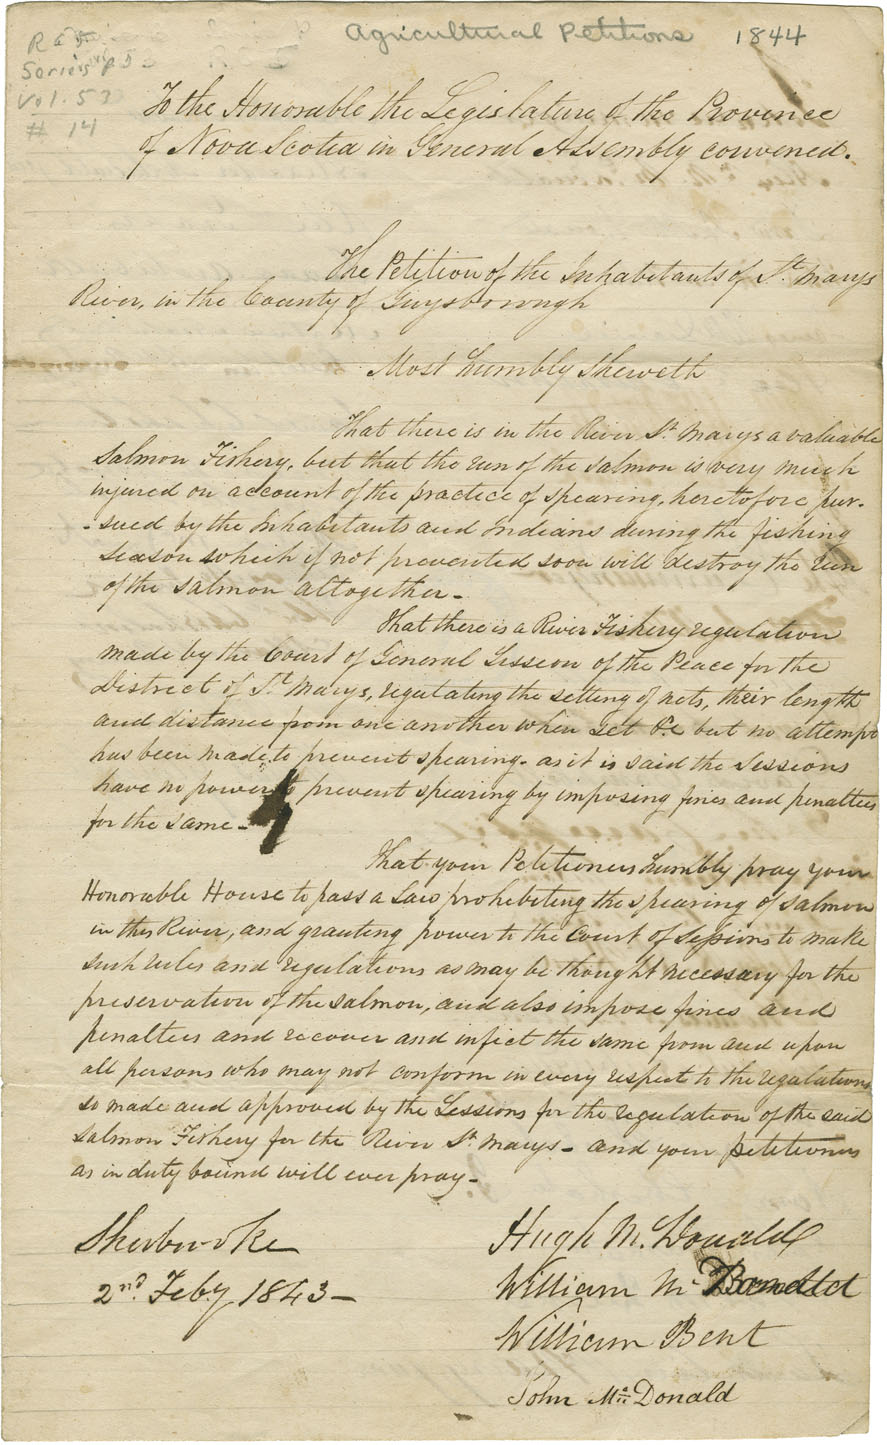 Agricultural Petitions 1844
Series P
Vol. 53
# 14
To the Honorable the Legislature of the Province
of Nova Scotia in General Assembly convened.
The Petition of the Inhabitants of St. Marys
River, in the County of Guysborough
Most humbly Sheweth
That there is in the River St. Marys a valuable
Salmon Fishery, but that the run of the salmon is very much
injured on account of the practice of spearing, heretofore pur-
-sued by the Inhabitants and Indians during the fishing
Season which if not prevented soon will destroy the run
of the salmon altogether -
That there is a River Fishery regulation
made by the Court of General Session of the Peace for the
District of St. Marys, regulating the setting of nets, their length
and distance from one another when set &c but no attempt
has been made to prevent spearing - as it is said the Sessions
have no power to prevent spearing by imposing fines and penalties
for the same -
That your Petitioners humbly pray your
Honorable House to pass a Law prohibiting the spearing of salmon
in this River, and granting power to the Court of Sessions to make
such rules and regulations as may be thought necessary for the
preservation of the salmon, and also impose fines and
penalties and recover and infict the same from and upon
all persons who may not conform in every respect to the regulations
so made and approved by the Sessions for the regulation of the said
Salmon Fishery for the River St. Marys - and your petitioners
as in duty bound will ever pray -
Sherbrooke
2nd. Feby 1843 -
Hugh McDonald
William Mc
William Bent
John McDonald